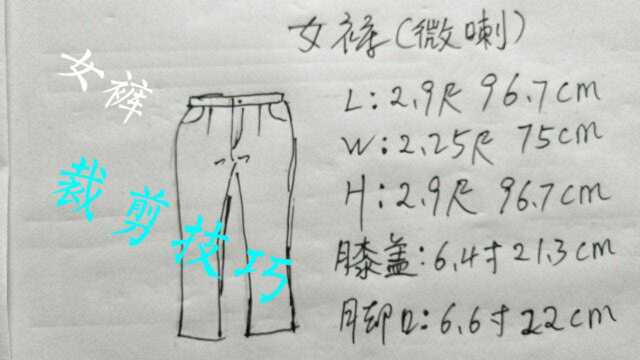 女裤(微喇)
L:2.9尺 96.7cm
W:2.25尺 75cm
H:2.9尺 96.7cm
膝盖:6.4寸21.3cm
脚口:6.6寸22cm
女裤
裁剪技巧